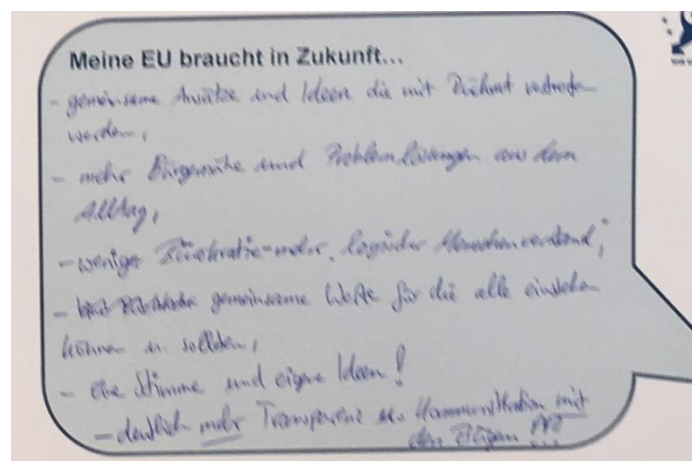 Meine EU braucht in Zukunft...
- gemeinsame Ansätze und Ideen die mit Weitblick vertreten
werden,
- mehr Bürgernähe und Problemlösungen aus dem
Alltag,
- weniger Bürokratie - mehr "logischer Menschenverstand",
- gemeinsame Werte für die alle einstehen
können u. sollten,
- eine Stimme und eigene Ideen!
- deutlich mehr Transparenz u. Kommunikation mit
den Bürgern !!!